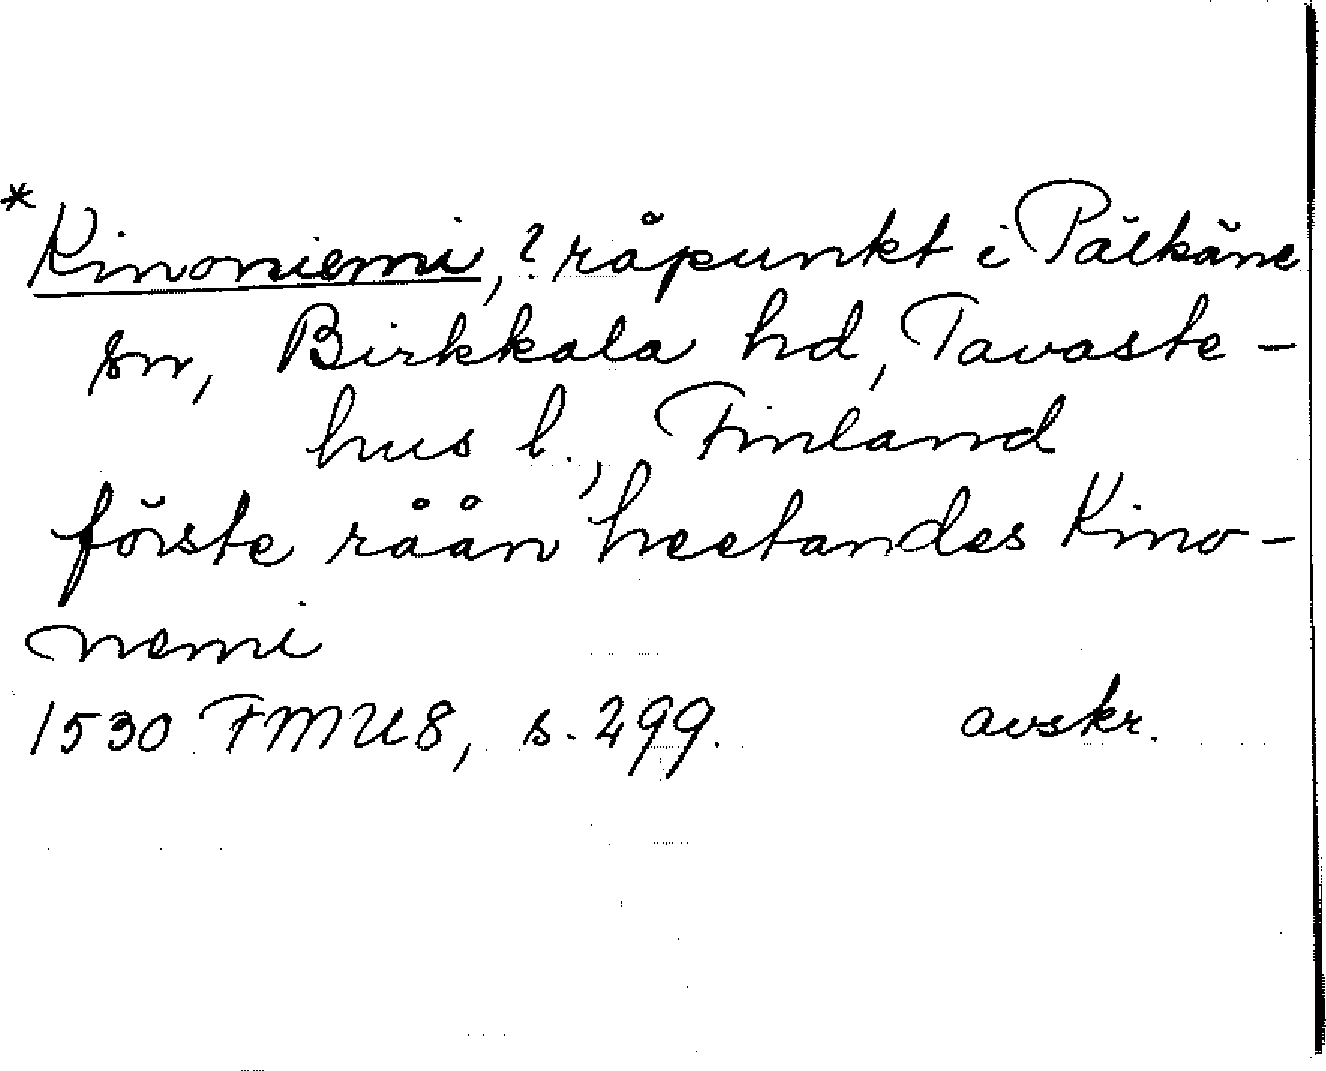 *Kinoniemi, ? råpunkt i Pälkäne
sn, Birkkala hd, Tavaste-
hus l., Finland
förste råån heetandes Kino-
nemi
1530 FMU8, s. 299. avskr.